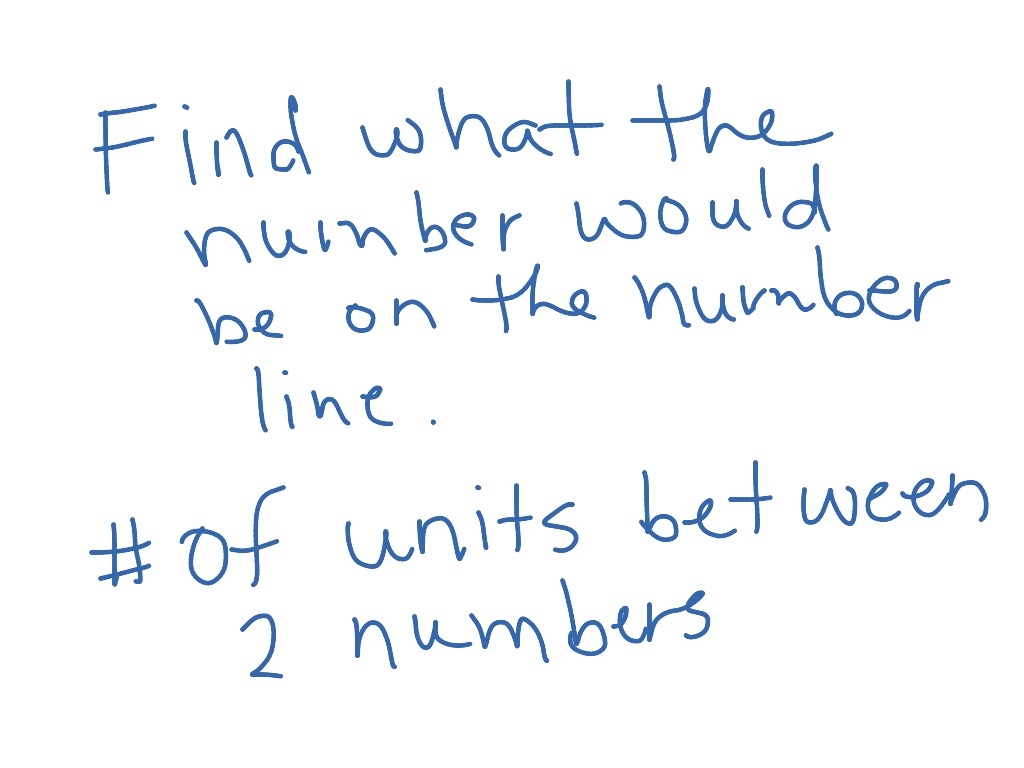 Find what the
number would
be on the number
line.
# of units between
2 numbers